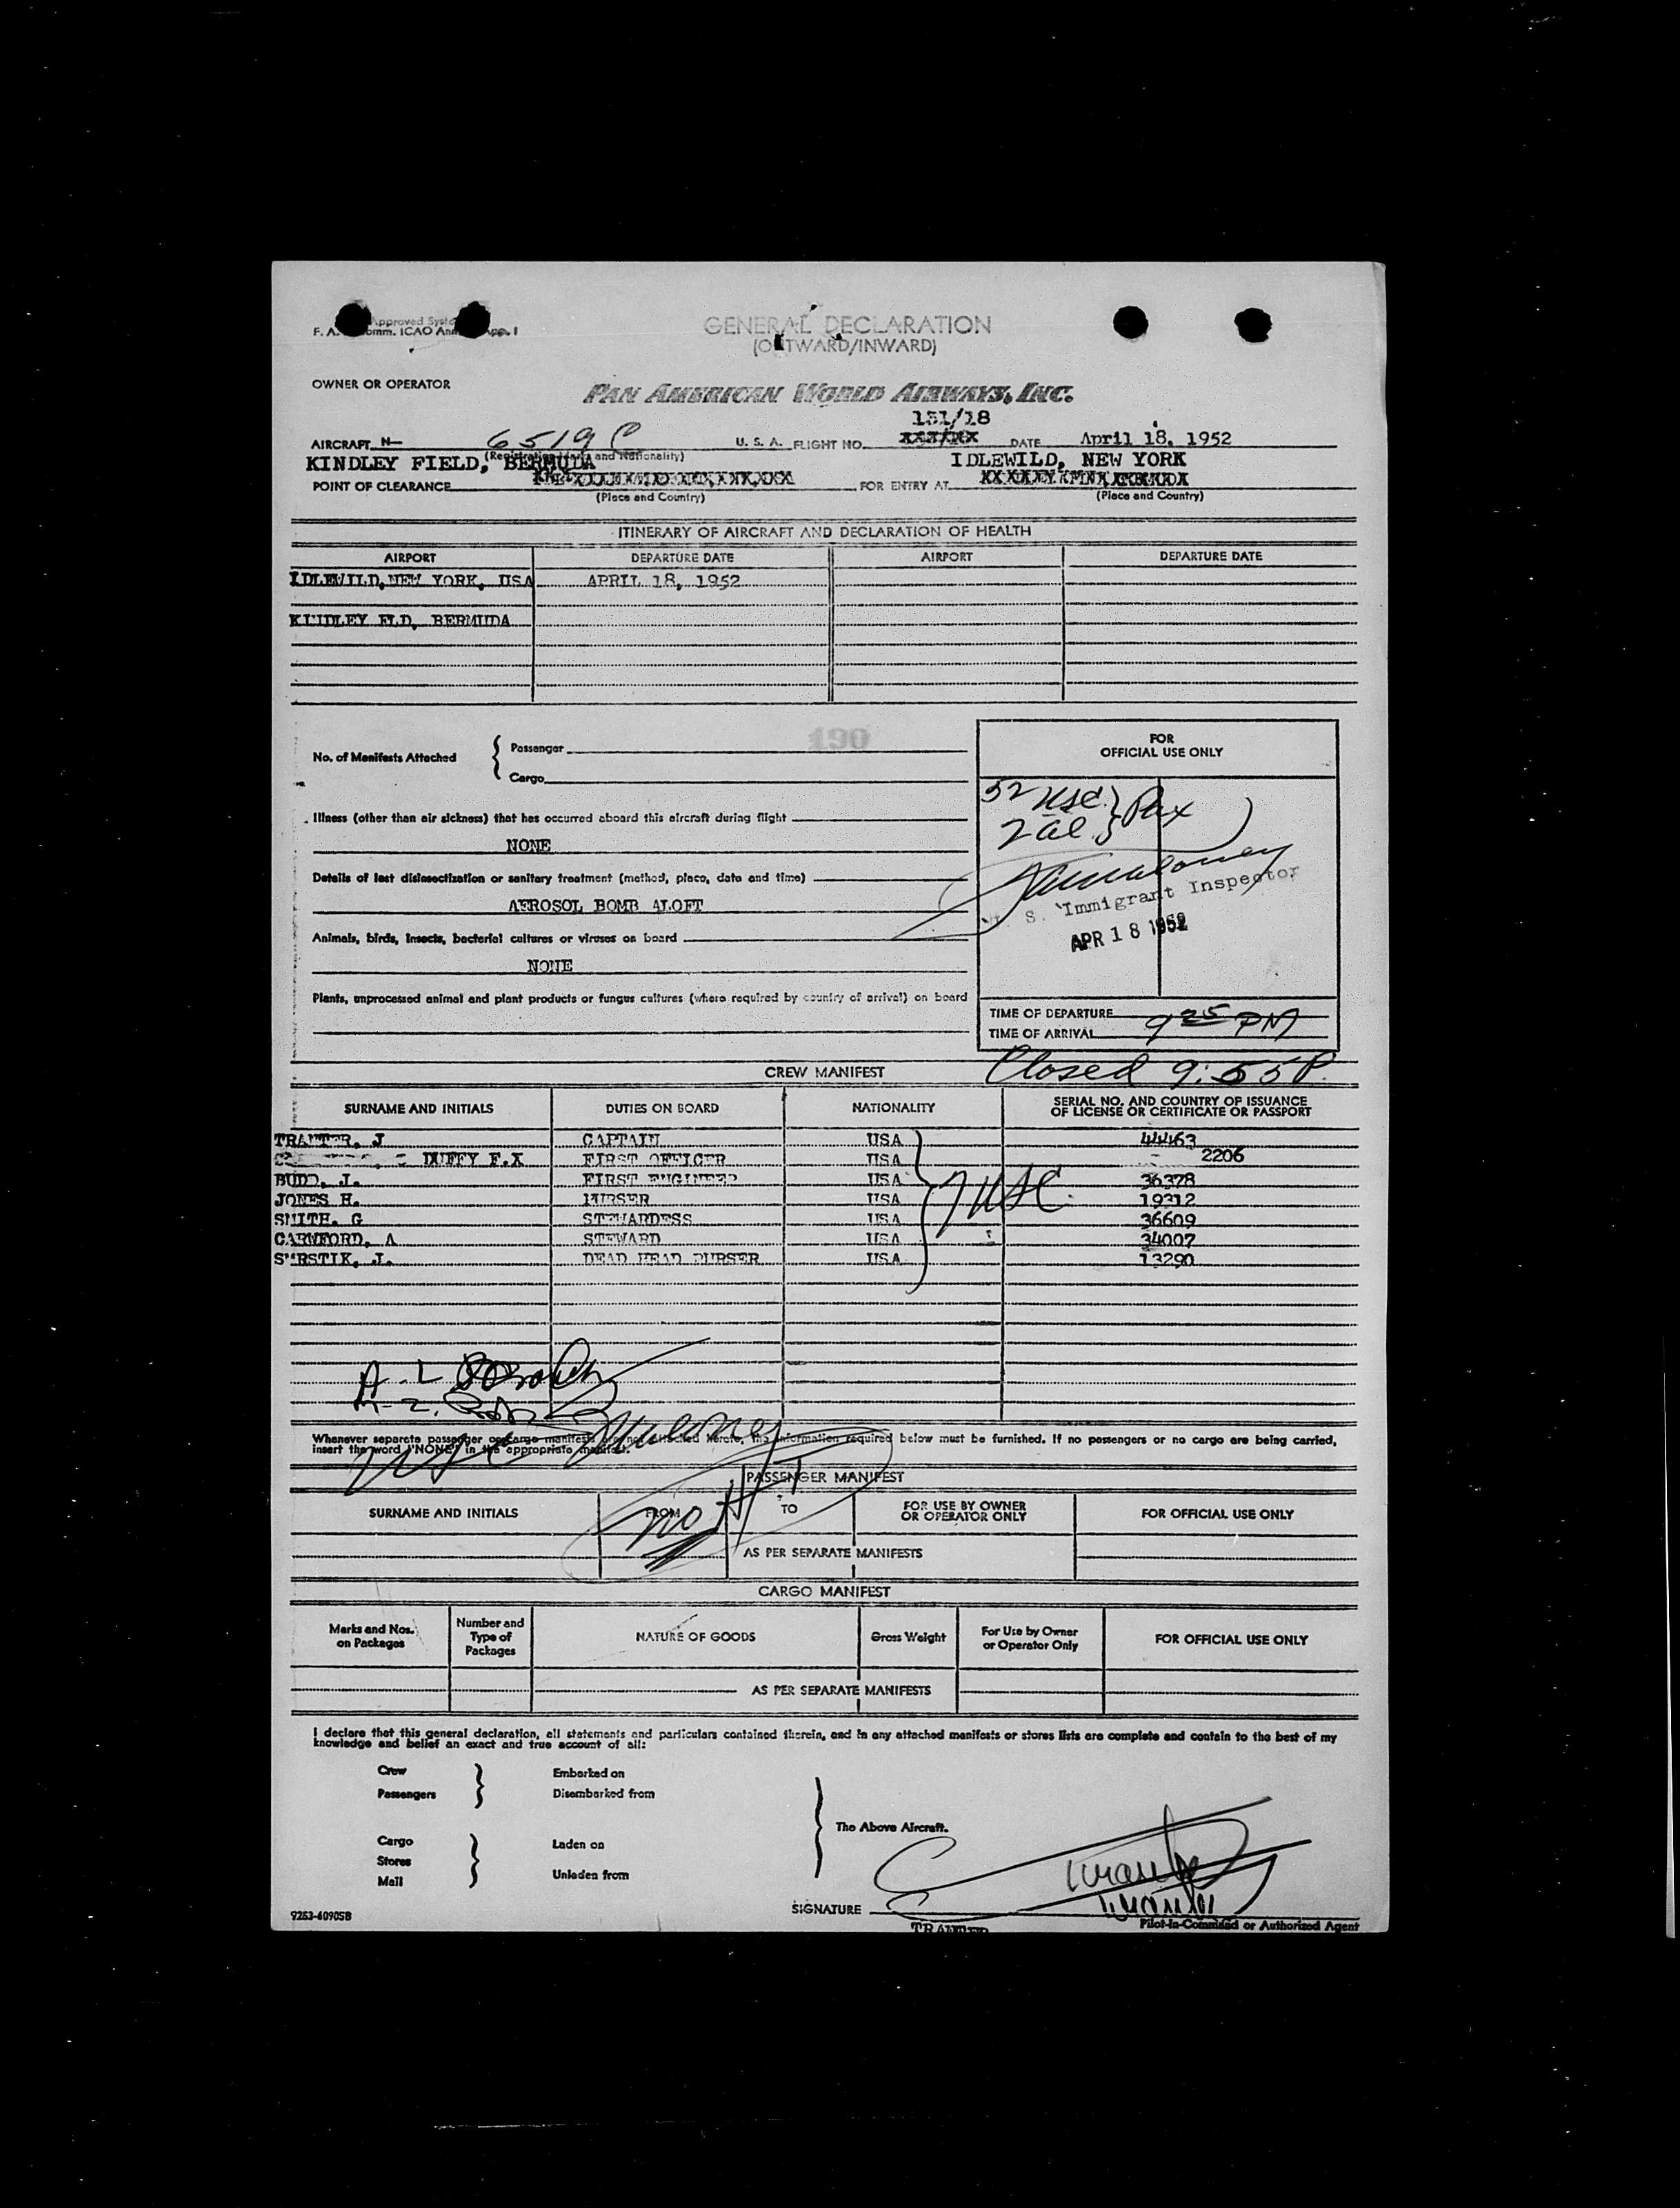 Approved
F. A. omm. ICAO An App. I
GENERAL DECLARATION
(OUTWARD/INWARD)
OWNER OR OPERATOR
PAN AMERICAN WORLD AIRWAYS, INC.
151/18
AIRCRAFT N— 6519C U. S. A. FLIGHT NO. DATE April 18, 1952
(Registration and Nationality)
KINDLEY FIELD, BERMUDA IDLEWILD, NEW YORK
POINT OF CLEARANCE FOR ENTRY AT
(Place and Country) (Place and Country)
ITINERARY OF AIRCRAFT AND DECLARATION OF HEALTH
AIRPORT DEPARTURE DATE AIRPORT DEPARTURE DATE
IDLEWILD, NEW YORK, USA APRIL 18, 1952
KINDLEY FLD, BERMUDA
190
No. of Manifests Attached { Passenger
Cargo
FOR
OFFICIAL USE ONLY
52 USC } Pax
2 al }
Illness (other than air sickness) that has occurred aboard this aircraft during flight
NONE
Details of last disinsectization or sanitary treatment (method, place, date and time)
AEROSOL BOMB ALOFT
S. Immigrant Inspector
APR 18 1952
Animals, birds, insects, bacterial cultures or viruses on board
NONE
Plants, unprocessed animal and plant products or fungus cultures (where required by country of arrival) on board
TIME OF DEPARTURE
TIME OF ARRIVAL 9 25 PM
Closed 9:55 P.
CREW MANIFEST
SURNAME AND INITIALS DUTIES ON BOARD NATIONALITY SERIAL NO. AND COUNTRY OF ISSUANCE
OF LICENSE OR CERTIFICATE OR PASSPORT
TRANTER, J CAPTAIN USA 44463
DUFFY F.X FIRST OFFICER USA 2206
BUDD, J. FIRST ENGINEER USA 36378
JONES H. PURSER USA 19312
SMITH, G STEWARDESS USA 36609
CARWFORD, A STEWARD USA 34007
J. DEAD HEAD PURSER USA 13290
7 USC
Whenever separate passenger or cargo manifests are not attached hereto, the information required below must be furnished. If no passengers or no cargo are being carried,
insert the word "NONE" in the appropriate manifest.
PASSENGER MANIFEST
SURNAME AND INITIALS FROM TO FOR USE BY OWNER
OR OPERATOR ONLY FOR OFFICIAL USE ONLY
AS PER SEPARATE MANIFESTS
CARGO MANIFEST
Marks and Nos.
on Packages Number and
Type of
Packages NATURE OF GOODS Gross Weight For Use by Owner
or Operator Only FOR OFFICIAL USE ONLY
AS PER SEPARATE MANIFESTS
I declare that this general declaration, all statements and particulars contained therein, and in any attached manifests or stores lists are complete and contain to the best of my
knowledge and belief an exact and true account of all:
Crew
Passengers } Embarked on
Disembarked from
The Above Aircraft.
Cargo
Stores
Mail } Laden on
Unladen from
SIGNATURE
TRANTER
Pilot-in-Command or Authorized Agent
9263-40905B